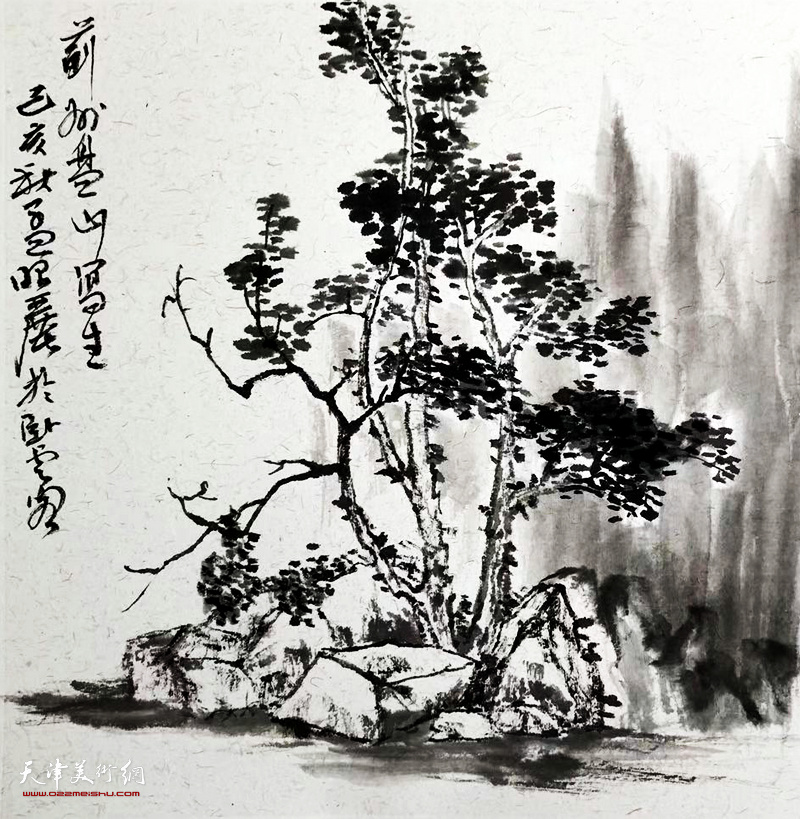 蓟州盘山写生
己亥秋孟昭丽於卧云窗
天津美术网
www.022meishu.com